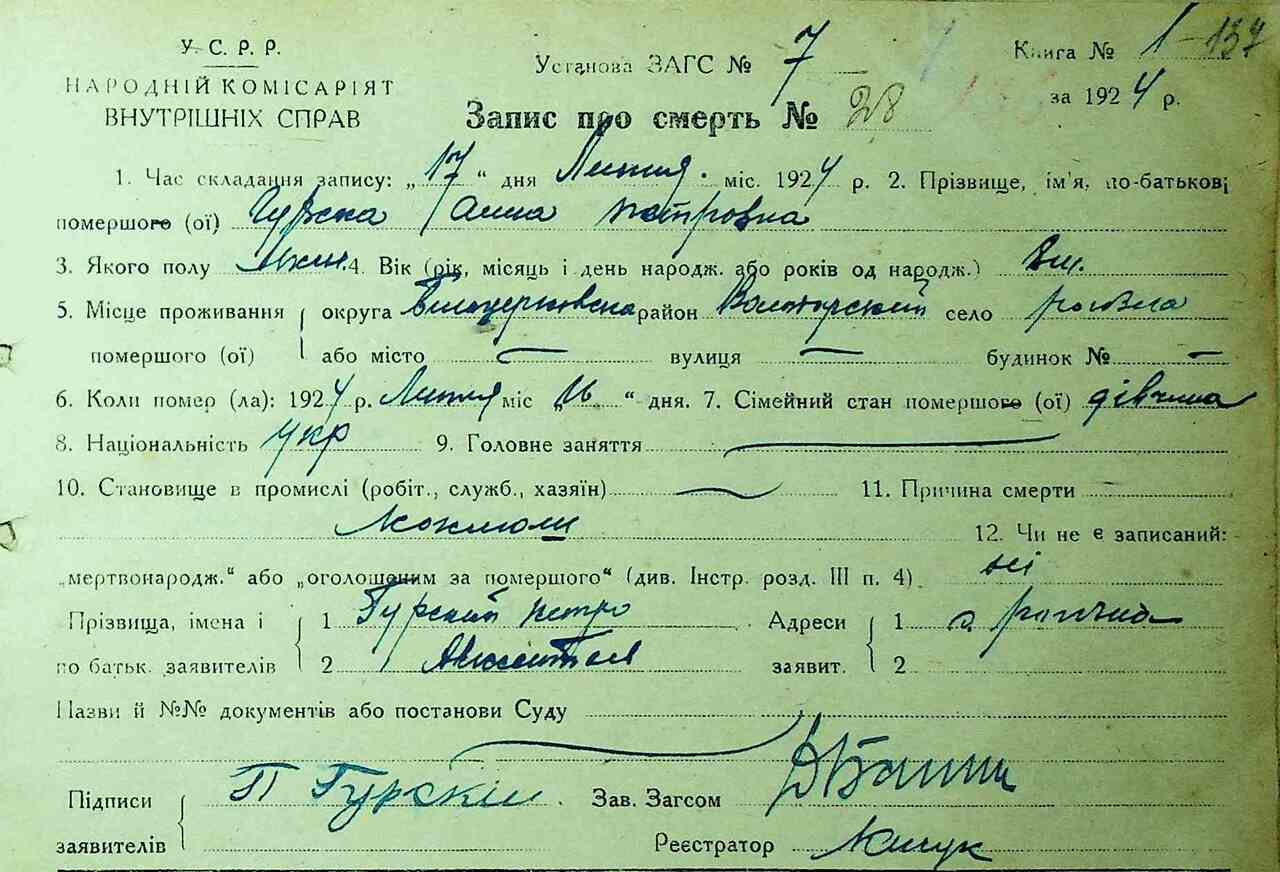 У. С. Р. Р.
НАРОДНІЙ КОМІСАРІЯТ
ВНУТРІШНІХ СПРАВ
Установа ЗАГС № 7
Книга № 1-137
за 1924 р.
Запис про смерть № 28
1. Час складання запису: „17“ дня Липня міс. 1924 р. 2. Прізвище, ім'я, по-батькові
помершого (ої) Гурска Анна Петровна
3. Якого полу жін. 4. Вік (рік, місяць і день народж. або років од народж.)
5. Місце проживання округа Білоцерковска район село
помершого (ої) або місто — вулиця — будинок № —
6. Коли помер (ла): 1924 р. Липня міс „16“ дня. 7. Сімейний стан помершого (ої) дівчина
8. Національність укр 9. Головне заняття
10. Становище в промислі (робіт., служб., хазяїн) 11. Причина смерти
12. Чи не є записаний:
„мертвонародж.“ або „оголошеним за помершого“ (див. Інстр. розд. III п. 4) ні
Прізвища, імена і 1 Гурский Петро Адреси 1 с.
по батьк. заявителів 2 заявит. 2
Назви й №№ документів або постанови Суду
Підписи П Гурскій Зав. Загсом
заявителів Реєстратор